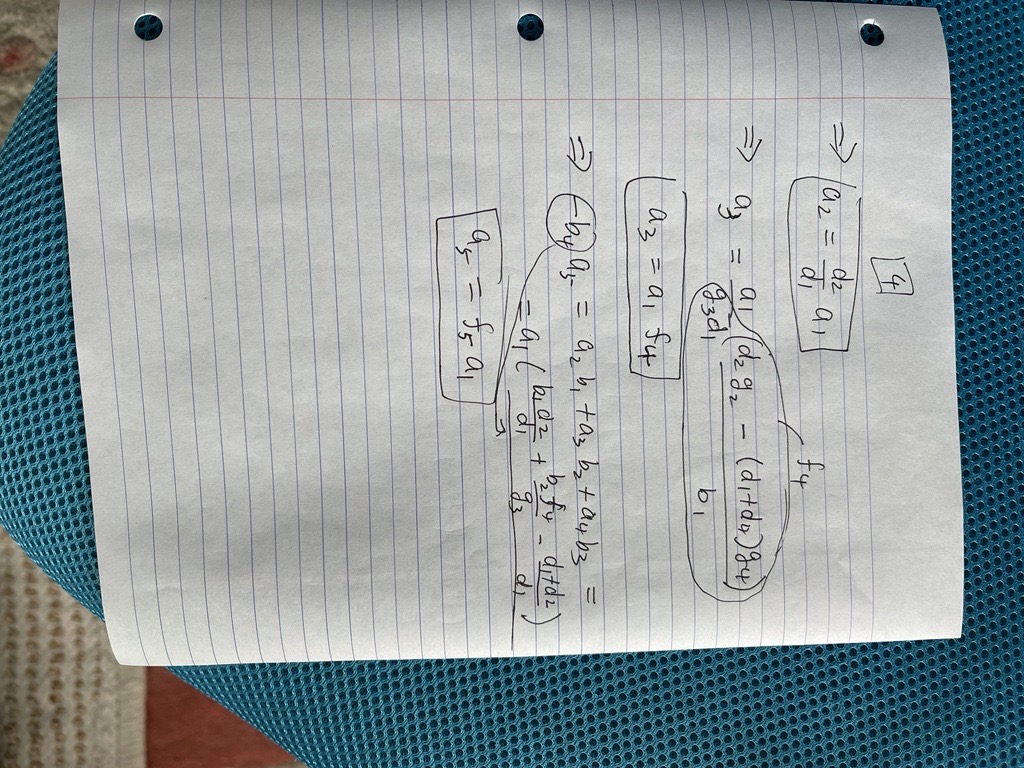 4
⇒ a₂ = d₂/d₁ a₁
f₄
⇒ a₃ = a₁/(g₃d₁) (d₂ g₂ − (d₁+d₄)g₄)/b₁
a₃ = a₁ f₄
⇒ −b₄ a₅ = a₂ b₁ + a₃ b₂ + a₄ b₃ =
= a₁ ( b₁ d₂/d₁ + b₂ f₄/g₃ − (d₁+d₂)/d₁ )
a₅ = f₅ a₁